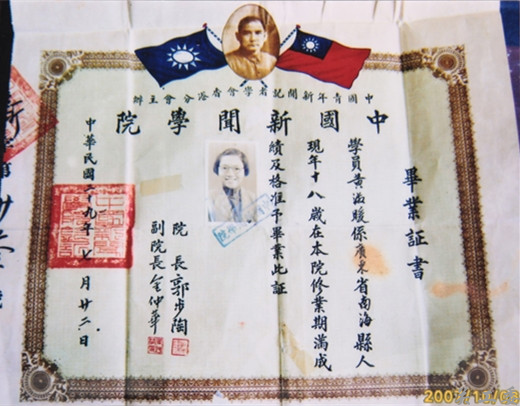 中國青年新聞記者學會香港分會主辦
中國新聞學院
畢業証書
學員黃係廣東省南海縣人
現年十八歲在本院修業期滿成
績及格准予畢業此証
院長郭步陶
副院長金仲華
中華民國二十九年七月廿二日
2007/10/03